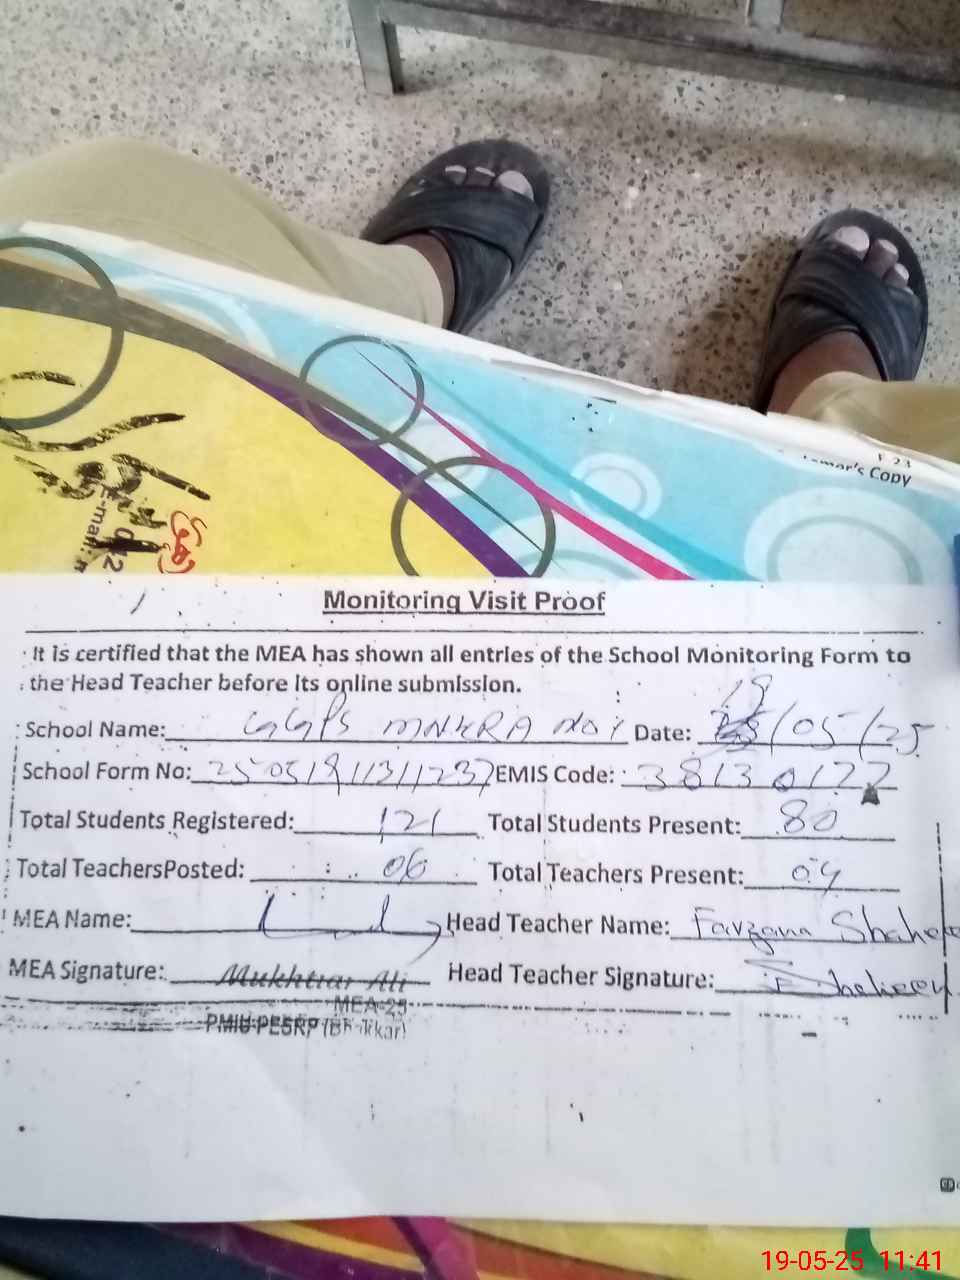 mar's Copy
Monitoring Visit Proof
It is certified that the MEA has shown all entries of the School Monitoring Form to
the Head Teacher before its online submission.
School Name: GGPS MNKRA NO1 Date: 19/05/25
School Form No: EMIS Code: 38130122
Total Students Registered: 121 Total Students Present: 80
Total TeachersPosted: 06 Total Teachers Present: 04
MEA Name: Head Teacher Name: Farzana Shahe
MEA Signature: Mukhtiar Ali Head Teacher Signature: Shaheen
MEA-25
PMIU-PESRP
19-05-25 11:41